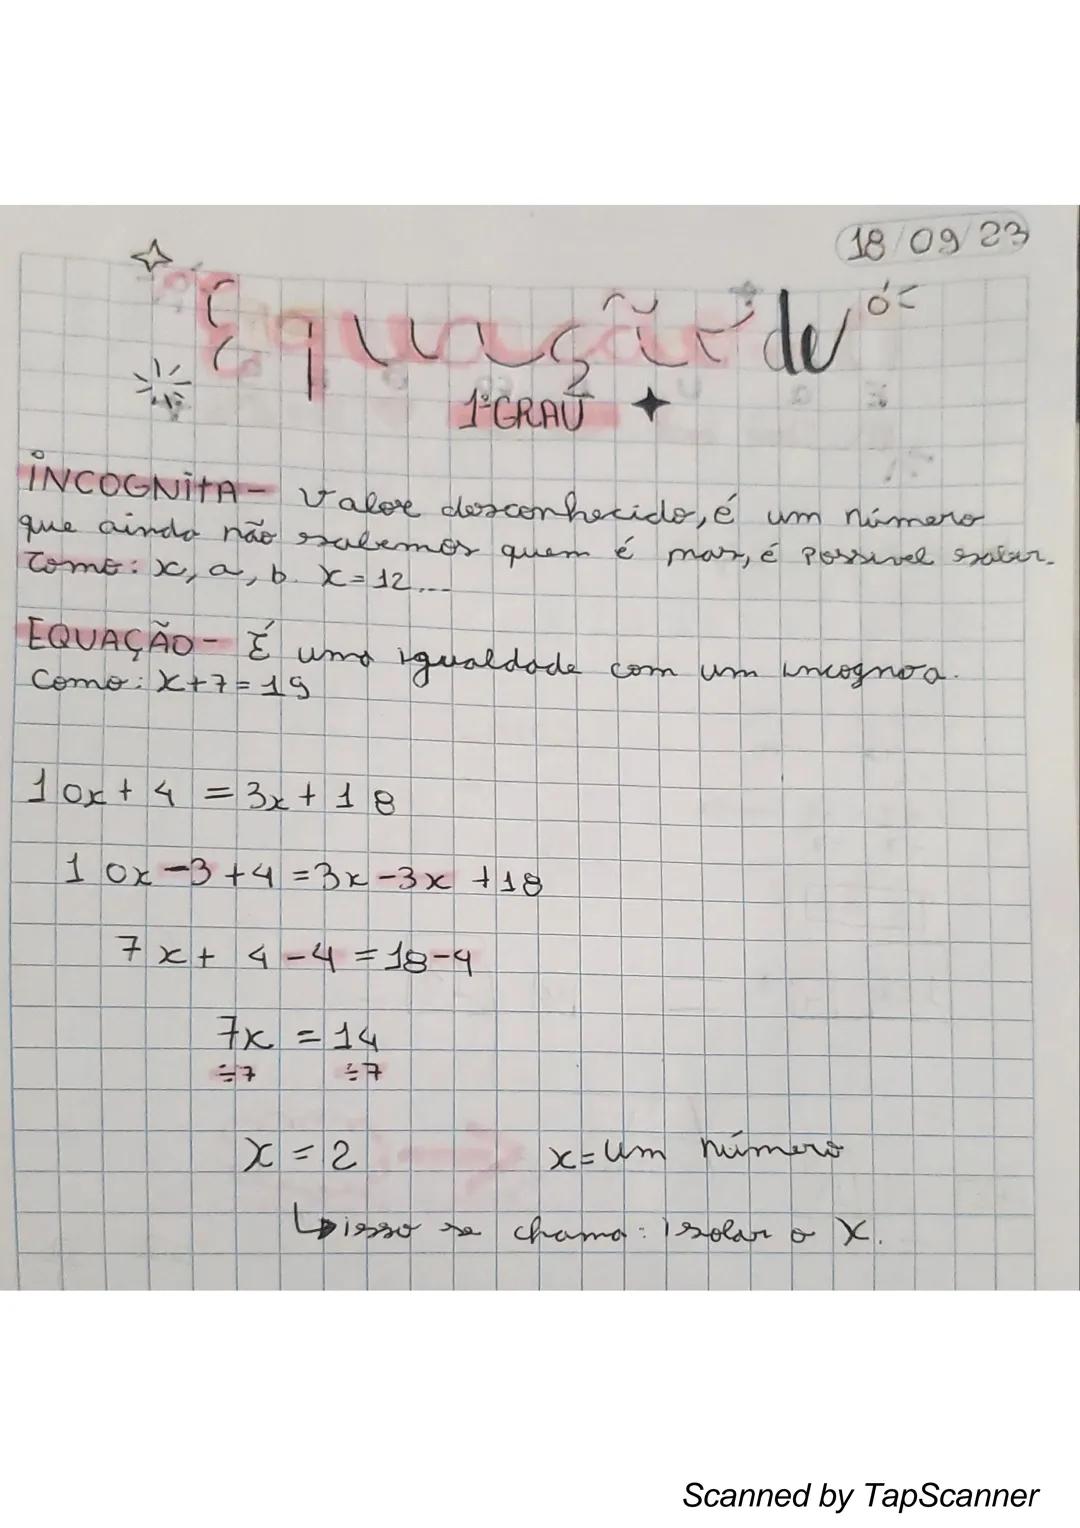 18/09/23
Equação de
1º GRAU
INCOGNITA - Valor desconhecido, é um número
que ainda não sabemos quem é mas, é possivel saber.
Como: x, a, b. x = 12...
EQUAÇÃO - É uma igualdade com um
Como: x + 7 = 19
10x + 4 = 3x + 18
10x - 3 + 4 = 3x - 3x + 18
7x + 4 - 4 = 18 - 4
7x = 14
÷7 ÷7
x = 2 x = um número
isso se chama: isolar o x.
Scanned by TapScanner